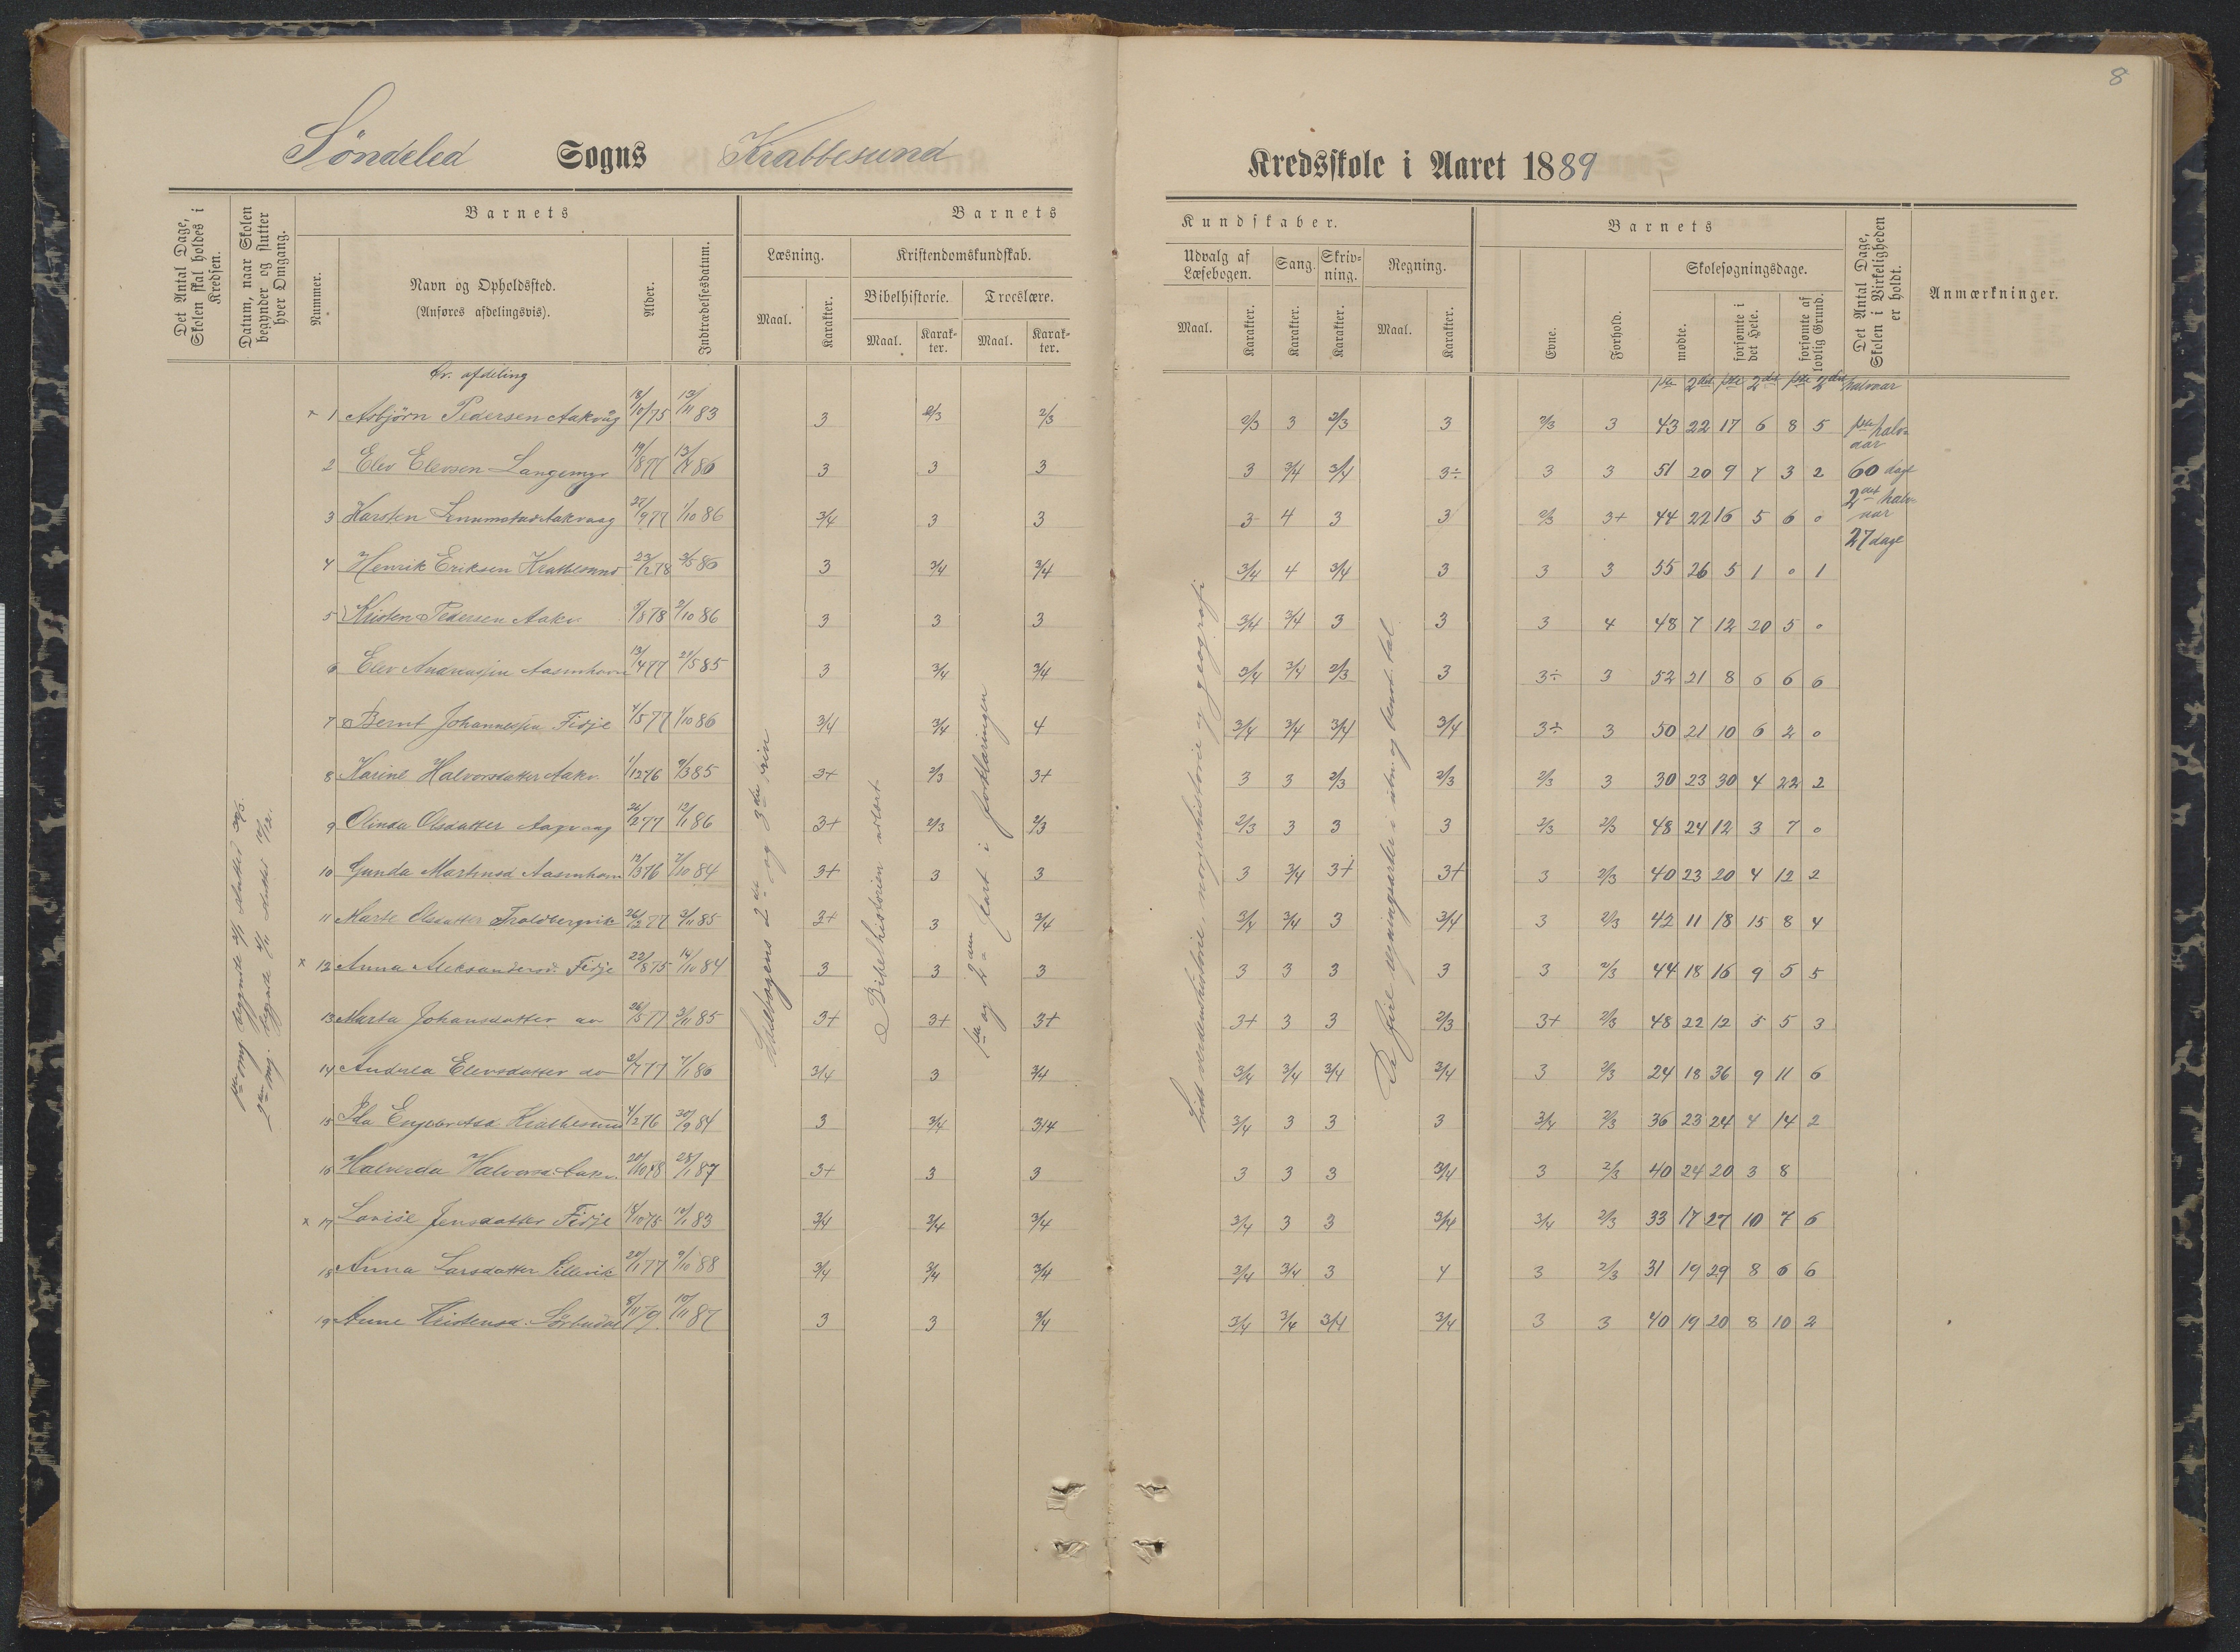 8
Søndeled Sogns Krabbesund Kredsskole i Aaret 1889
Det Antal Dage, Skolen skal holdes i Kredsen.
Datum, naar Skolen begynder og slutter hver Omgang.
Barnets
Nummer.
Navn og Opholdssted.
(Anføres afdelingsvis).
Alder.
Indtrædelsesdatum.
Barnets Kundskaber.
Læsning.
Maal.
Karakter.
Kristendomskundskab.
Bibelhistorie.
Maal.
Karakter.
Troeslære.
Maal.
Karakter.
Udvalg af Læsebogen.
Maal.
Karakter.
Sang.
Karakter.
Skrivning.
Karakter.
Regning.
Maal.
Karakter.
Barnets
Evne.
Forhold.
Skolesøgningsdage.
mødte.
forsømte i det Hele.
forsømte af lovlig Grund.
Det Antal Dage, Skolen i Virkeligheden er holdt.
Anmærkninger.
afdeling
1ste 2det 1ste 2det 1ste 2det halvaar
× 1 Asbjørn Pedersen Aakvåg 18/10 75 12/11 83 3 2/3 2/3 2/3 3 2/3 3 2/3 3 43 22 17 6 8 5
1ste halvaar
2 Elev Elevsen Langemyr 3 3 3 3 3/4 3/4 3÷ 3 3 51 20 9 7 3 2
60 dage
2det halvaar
3 Karsten Aakvaag 27/9 77 1/10 86 3/4 3 3 3 4 3 3 2/3 3+ 44 22 16 5 6 0
27 dage
4 Henrik Eriksen Krabbesund 3 3/4 3/4 3/4 4 3/4 3 3 3 55 26 5 1 0 1
5 Kristen Pedersen Aakv. 2/10 86 3 3 3 3/4 3/4 3 3 3 4 48 7 12 20 5 0
6 Elev Andreassen 13/4 77 3 3/4 3/4 3/4 3/4 2/3 3 3÷ 3 52 21 8 6 6 6
7 Bernt Johannessen Fidje 1/10 86 3/4 3/4 4 3/4 3/4 3/4 3/4 3÷ 3 50 21 10 6 2 0
8 Karine Halvorsdatter Aakv. 1/12 76 3+ 2/3 3+ 3 3 2/3 2/3 2/3 3 30 23 30 4 22 2
9 Olinda Olsdatter 26/2 77 12/1 86 3+ 2/3 2/3 2/3 3 3 3 2/3 2/3 48 24 12 3 7 0
10 Gunda 12/3 76 3+ 3 3 3 3/4 3+ 3+ 3 2/3 40 23 20 4 12 2
11 Marte Olsdatter Troldbergvik 26/2 77 3/11 85 3+ 3 3/4 3/4 3/4 3 3/4 3 2/3 42 11 18 15 8 4
× 12 Anna Aleksandersd. Fidje 22/8 75 14/10 84 3 3 3 3 3 3 3 3 2/3 44 18 16 9 5 5
13 Marta Johansdatter do 26/5 77 3/11 85 3+ 3+ 3+ 3+ 3 3 2/3 3+ 2/3 48 22 12 5 5 3
14 Elevsdatter do 7/1 86 3/4 3 3/4 3/4 3/4 3/4 3/4 3 2/3 24 18 36 9 11 6
15 Ida Krabbesund 4/2 76 30/9 84 3 3/4 3/4 3/4 3 3 3 3/4 2/3 36 23 24 4 14 2
16 Halverda Halvorsd. Aakv. 20/10 78 28/1 87 3+ 3 3 3 3 3 3/4 3 2/3 40 24 20 3 8
× 17 Lovise Jensdatter Fidje 18/10 75 12/1 83 3/4 3/4 3/4 3/4 3 3 3/4 3/4 2/3 33 17 27 10 7 6
18 Anna Larsdatter 9/10 88 3/4 3/4 3/4 3/4 3/4 3 4 3 2/3 31 19 29 8 6 6
19 Anne Kristensd. 8/11 79 10/11 87 3 3 3/4 3/4 3/4 3/4 3/4 3 3 40 19 20 8 10 2
1ste omg. begyndte sluttet
2den omg. begyndte sluttet
2det og 3die trin
Bibelhistorien
1ste og 2den part i forklaringen
Lidt verdenshistorie norgeshistorie og geografi
De fire regningsarter i